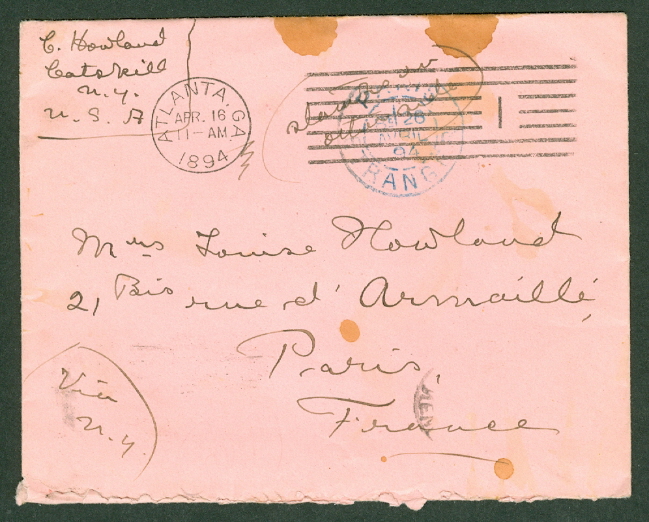 C. Howland
Catskill
N.Y.
U.S.A
ATLANTA, GA.
APR. 16
11-AM
1894
1
stamps on
opposite side
26
AVRIL
94
ETRANG
Mrs Louise Howland
21 Bis rue d'Armaillé,
Paris,
France
Via
N.Y.